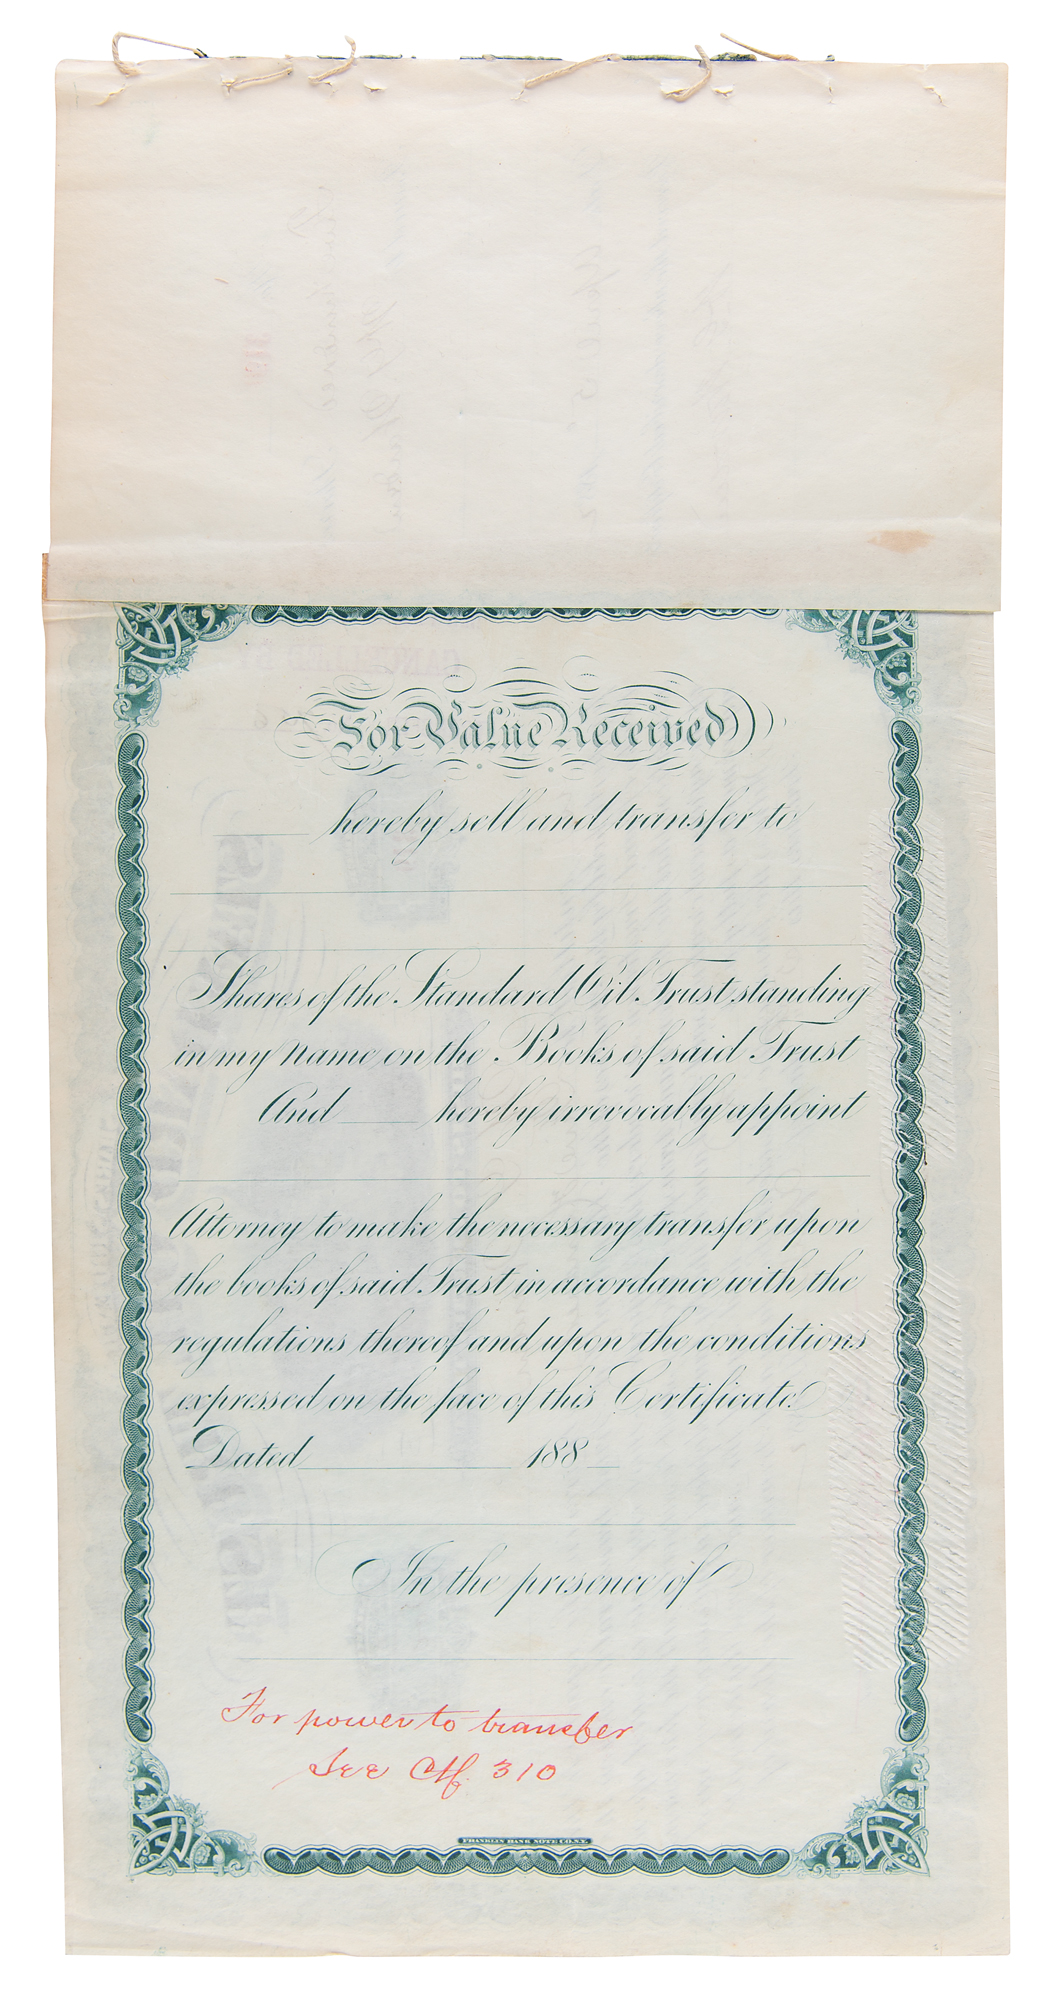 For Value Received
hereby sell and transfer to
Shares of the Standard Oil Trust standing
in my name on the Books of said Trust
And hereby irrevocably appoint
Attorney to make the necessary transfer upon
the books of said Trust in accordance with the
regulations thereof and upon the conditions
expressed on the face of this Certificate.
Dated 188
In the presence of
For power to transfer
See Ctf. 310
FRANKLIN BANK NOTE CO. N.Y.